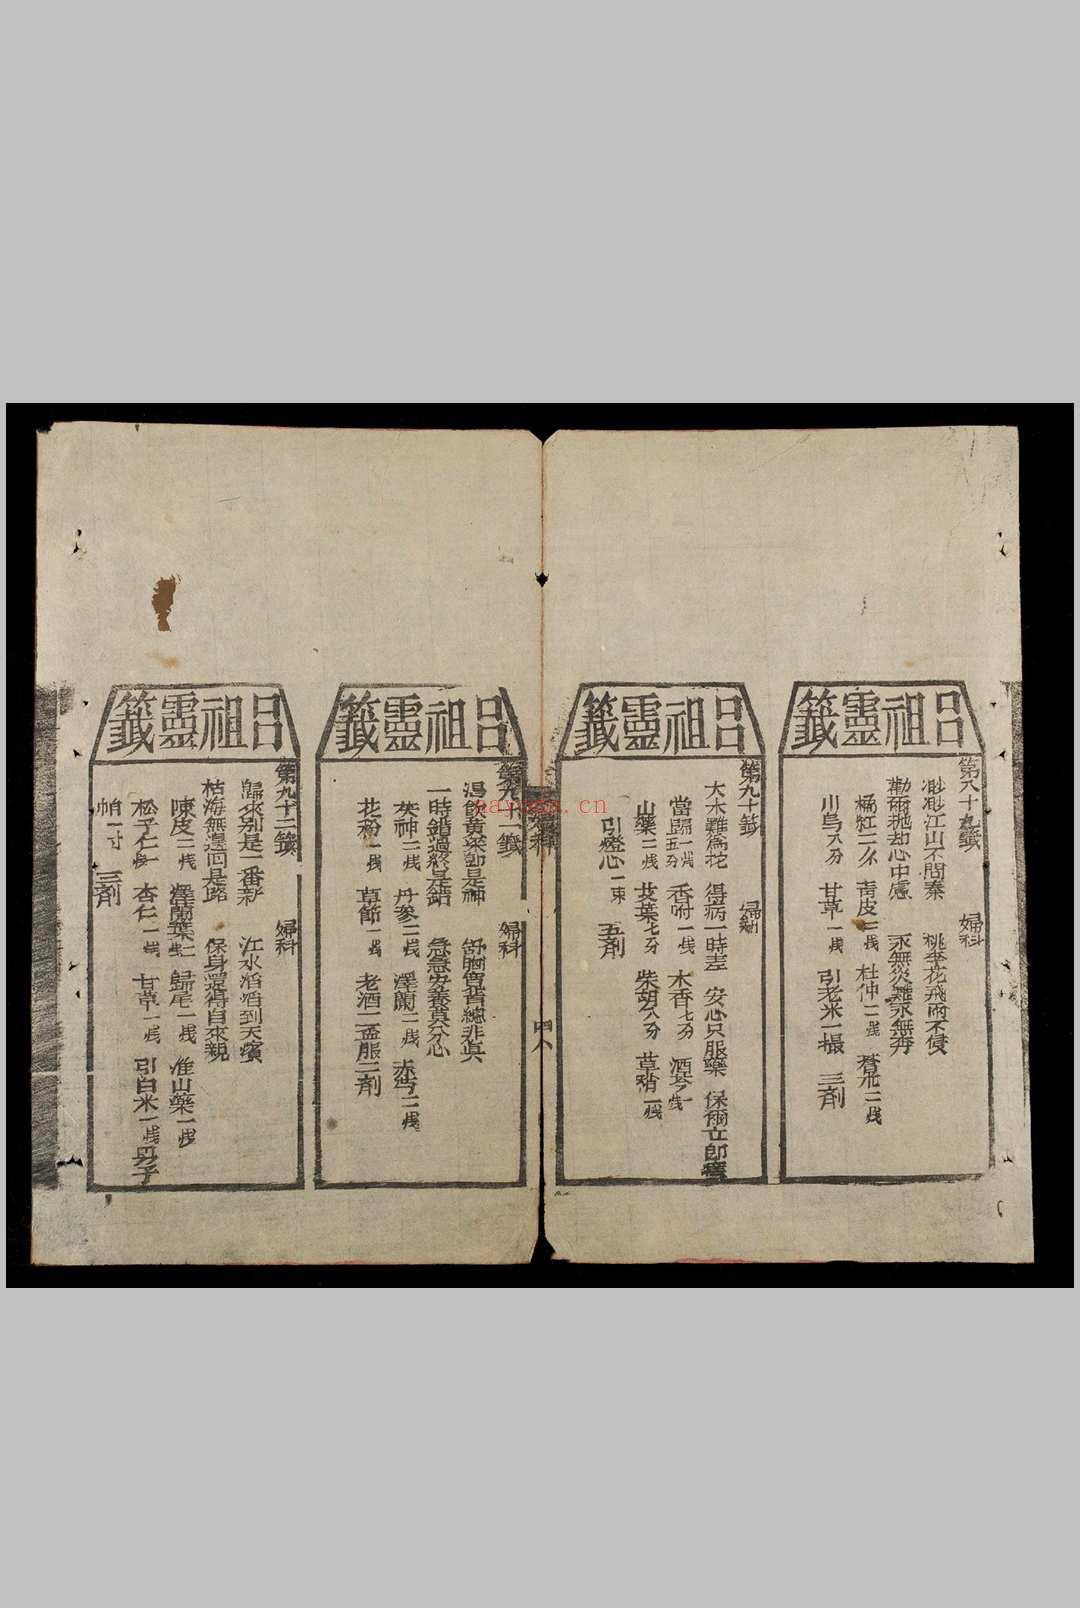 呂祖靈籤
第八十九籤 婦科
渺渺江山不問秦 桃李花飛雨不侵
勸爾拋却心中慮 永無災難永無
橘紅二 青皮二戔 杜仲二戔 二戔
川烏八分 甘草一戔 引老米一撮 三劑
呂祖靈籤
第九十籤 婦科
大木難為 得病一時差 安心只服藥 保爾立即
當歸一戔五分 香附一戔 木香七分 酒芩一戔
山藥二戔 艾葉七分 柴胡八分 草稍一戔
引燈心一束 五劑
四八
呂祖靈籤
第九十一籤 婦科
湯飲黃粱卽是神 總非眞
一時錯過終是錯 急急安養莫分心
茯神三戔 丹參二戔 澤蘭二戔 赤芍二戔
花粉一戔 草節一戔 老酒一盃服二劑
呂祖靈籤
第九十二籤 婦科
歸來別是一番新 江水滔滔到天濱
枯海無邊回是路 保身還得自來親
陳皮二戔 澤蘭葉 歸尾一戔 准山藥一戔
松子仁一戔 杏仁一戔 甘草一戔 引白米一戔 男子
帕一寸 三劑